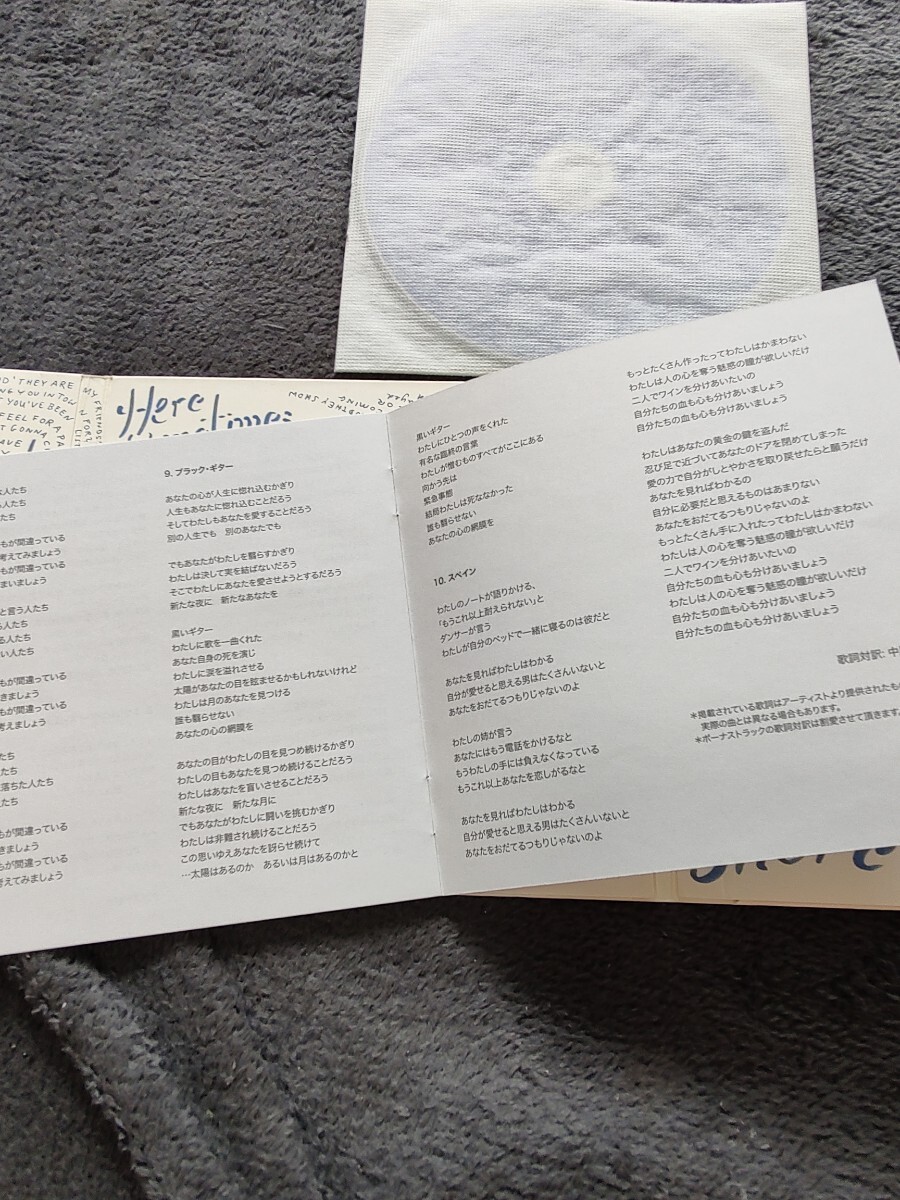 THEY ARE
YOU IN TOW
YOU'VE BEEN
FEEL FOR A
GONNA
Here
SHOW
COMING
な人たち
る人たち
たち
もが間違っている
考えてみましょう
もが間違っている
まいましょう
と言う人たち
る人たち
い人たち
もが間違っている
きましょう
もが間違っている
考えましょう
たち
たち
落ちた人たち
たち
もが間違っている
きましょう
もが間違っている
考えてみましょう
9. ブラック・ギター
あなたの心が人生に惚れ込むかぎり
人生もあなたに惚れ込むことだろう
そしてわたしもあなたを愛することだろう
別の人生でも 別のあなたでも
でもあなたがわたしを翳らすかぎり
わたしは決して実を結ばないだろう
そこでわたしにあなたを愛させようとするだろう
新たな夜に 新たなあなたを
黒いギター
わたしに歌を一曲くれた
あなた自身の死を演じ
わたしに涙を溢れさせる
太陽があなたの目を眩ませるかもしれないけれど
わたしは月のあなたを見つける
誰も翳らせない
あなたの心の網膜を
あなたの目がわたしの目を見つめ続けるかぎり
わたしの目もあなたを見つめ続けることだろう
わたしはあなたを盲いさせることだろう
新たな夜に 新たな月に
でもあなたがわたしに闘いを挑むかぎり
わたしは非難され続けることだろう
この思いゆえあなたを訝らせ続けて
…太陽はあるのか あるいは月はあるのかと
黒いギター
わたしにひとつの声をくれた
有名な臨終の言葉
わたしが憎むものすべてがここにある
向かう先は
緊急事態
結局わたしは死ななかった
誰も翳らせない
あなたの心の網膜を
10. スペイン
わたしのノートが語りかける、
「もうこれ以上耐えられない」と
ダンサーが言う
わたしが自分のベッドで一緒に寝るのは彼だと
あなたを見ればわたしはわかる
自分が愛せると思える男はたくさんいないと
あなたをおだてるつもりじゃないのよ
わたしの姉が言う
あなたにはもう電話をかけるなと
もうわたしの手には負えなくなっている
もうこれ以上あなたを恋しがるなと
あなたを見ればわたしはわかる
自分が愛せると思える男はたくさんいないと
あなたをおだてるつもりじゃないのよ
もっとたくさん作ったってわたしはかまわない
わたしは人の心を奪う魅惑の瞳が欲しいだけ
二人でワインを分けあいたいの
自分たちの血も心も分けあいましょう
自分たちの血も心も分けあいましょう
わたしはあなたの黄金の鍵を盗んだ
忍び足で近づいてあなたのドアを閉めてしまった
愛の力で自分がしとやかさを取り戻せたらと願うだけ
あなたを見ればわかるの
自分に必要だと思えるものはあまりない
あなたをおだてるつもりじゃないのよ
もっとたくさん手に入れたってわたしはかまわない
わたしは人の心を奪う魅惑の瞳が欲しいだけ
二人でワインを分けあいたいの
自分たちの血も心も分けあいましょう
わたしは人の心を奪う魅惑の瞳が欲しいだけ
自分たちの血も心も分けあいましょう
自分たちの血も心も分けあいましょう
歌詞対訳: 中
＊掲載されている歌詞はアーティストより提供されたもの
実際の曲とは異なる場合もあります。
＊ボーナストラックの歌詞対訳は割愛させて頂きます。